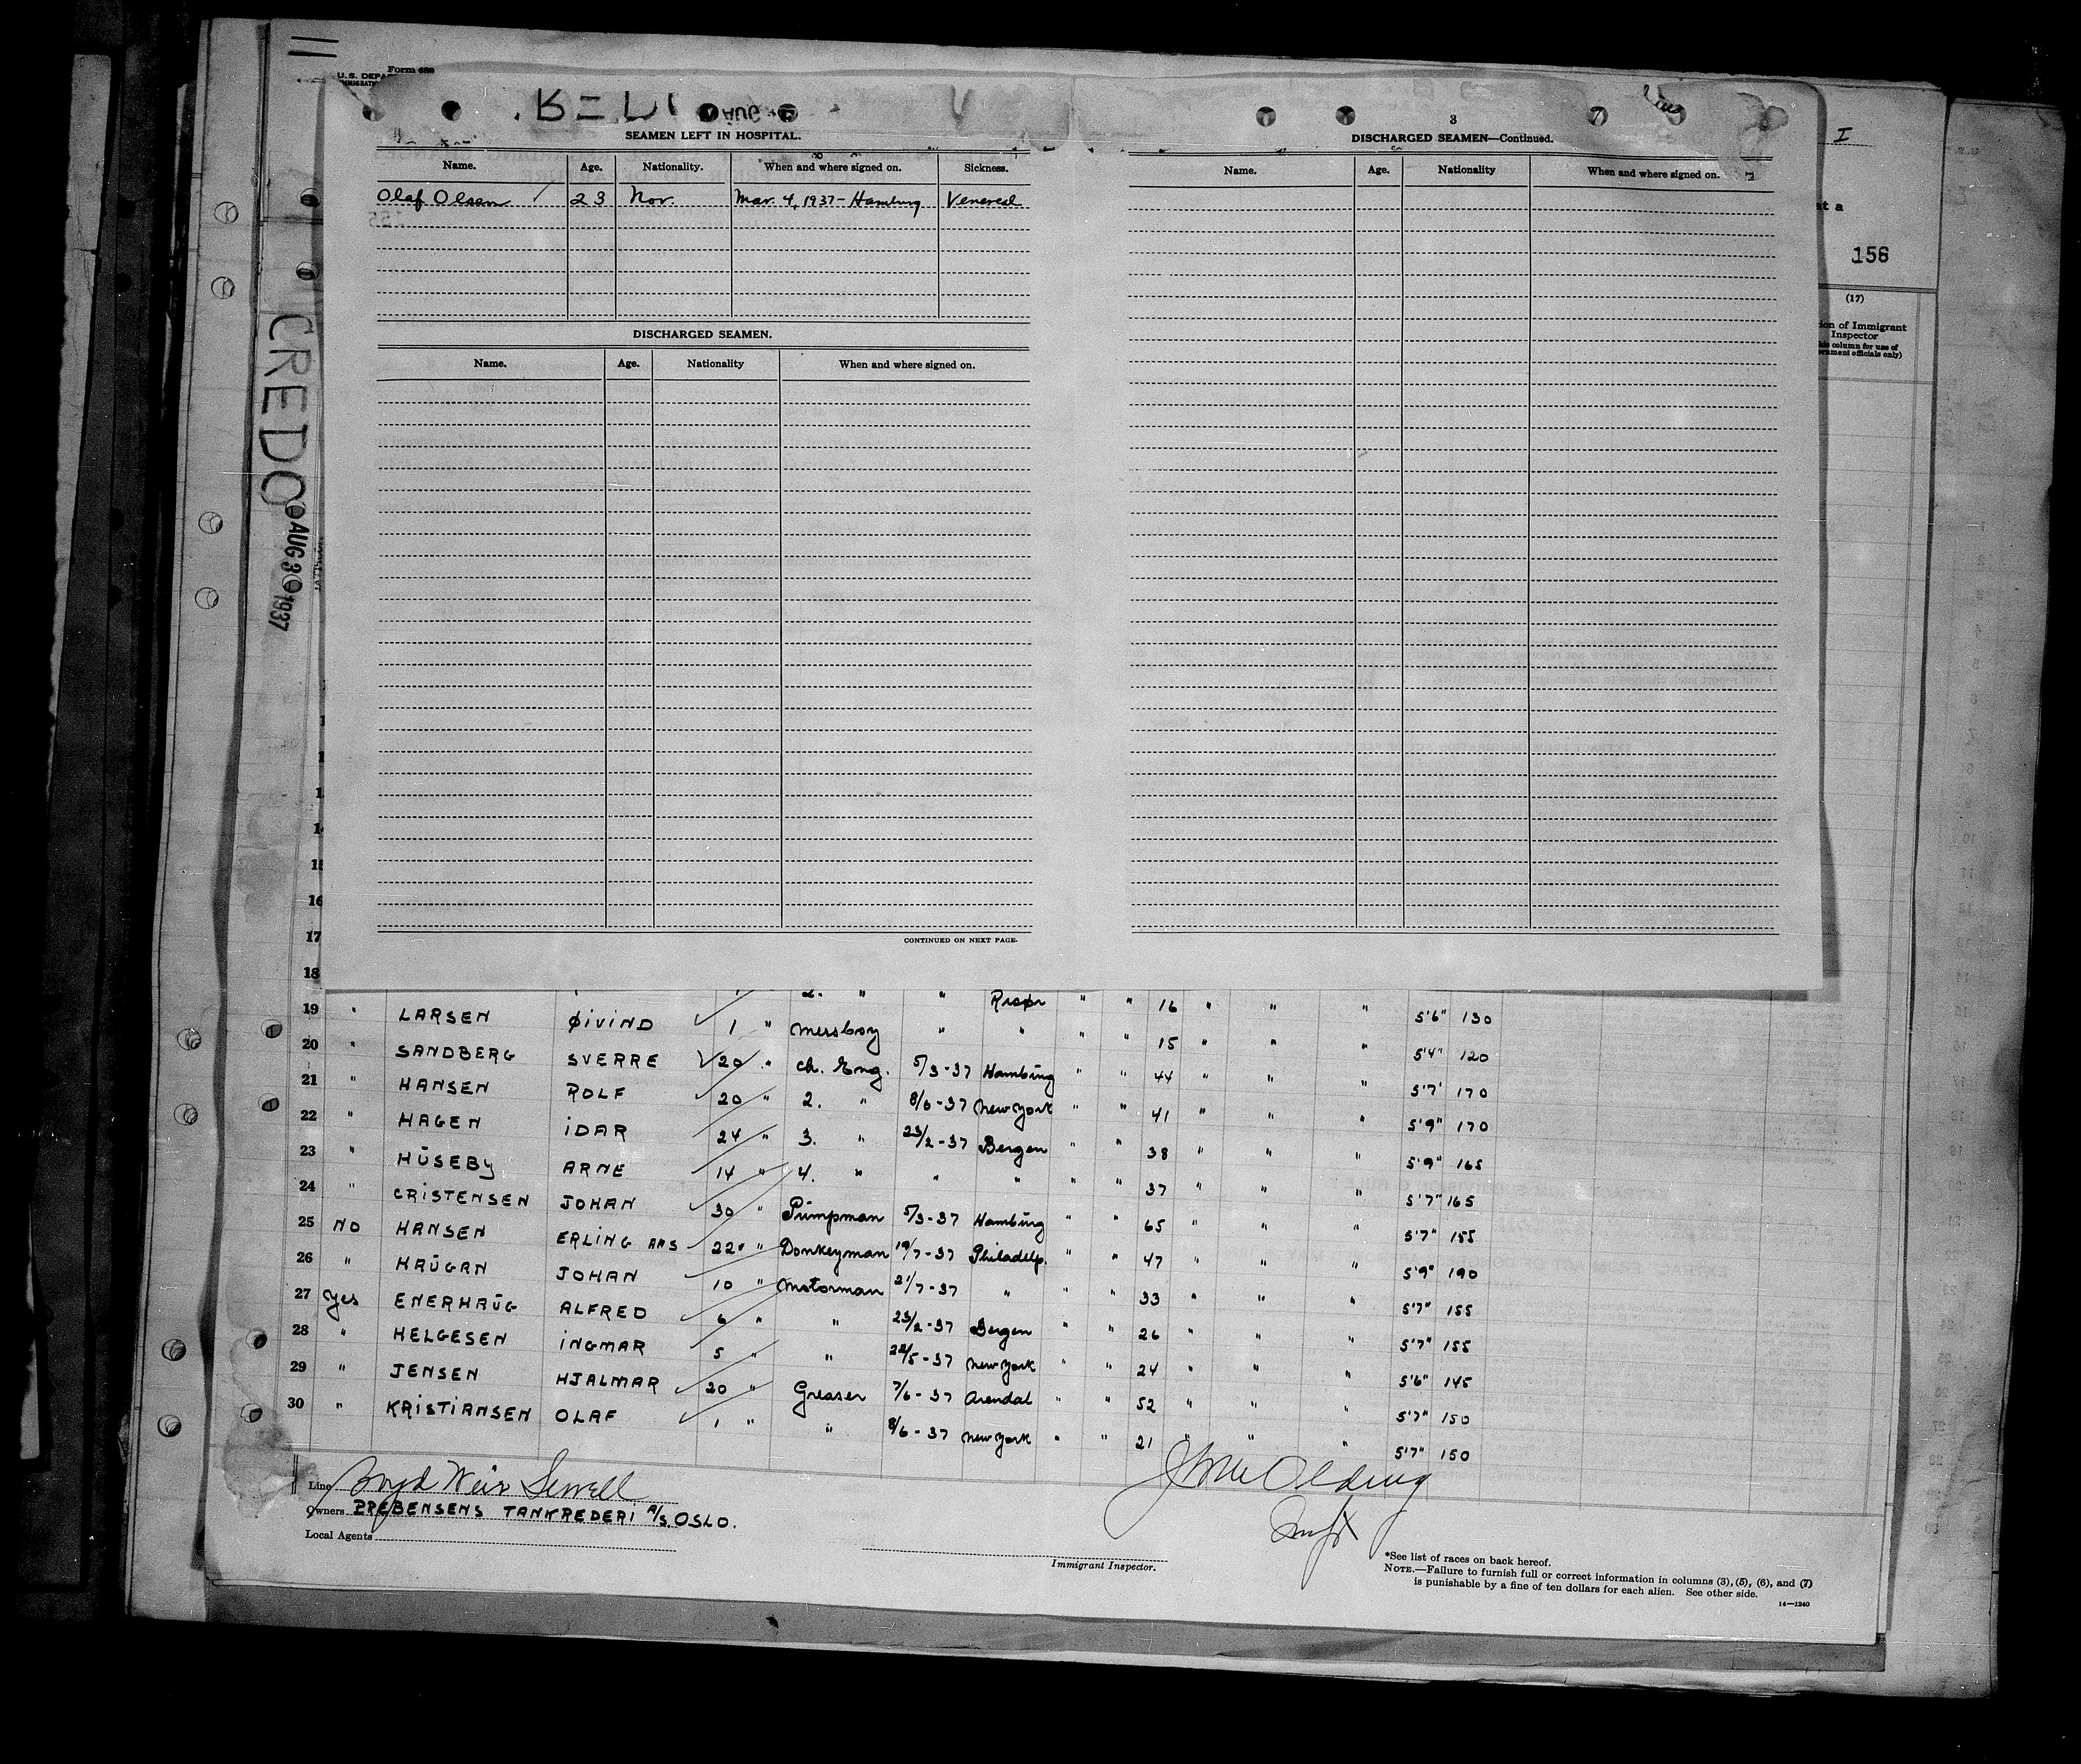 Form 680
U.S. DEPA
CREDO
AUG 30 1937
SEAMEN LEFT IN HOSPITAL.
Name. Age. Nationality. When and where signed on. Sickness.
Olaf Olsen 23 Nor. Mar. 4, 1937 - Hamburg Venereal
DISCHARGED SEAMEN.
Name. Age. Nationality When and where signed on.
CONTINUED ON NEXT PAGE.
3
DISCHARGED SEAMEN—Continued.
Name. Age. Nationality When and where signed on.
I
at a
156
(17)
ion of Immigrant
Inspector
his column for use of
ernment officials only)
16
17
18
2. " " Risør " " 16 " " " 5'6" 130
19 " LARSEN ØIVIND 1 " Messboy " " " " 15 " " " 5'4" 120
20 " SANDBERG SVERRE 20 " ch. Eng. 5/3-37 Hambürg " " 44 " " " 5'7' 170
21 " HANSEN ROLF 20 " 2. " 8/6-37 New York " " 41 " " " 5'9" 170
22 " HAGEN IDAR 24 " 3. " 23/2-37 Bergen " " 38 " " " 5'9" 165
23 " HŪSEBY ARNE 14 " 4. " " " " " 37 " " " 5'7" 165
24 " CRISTENSEN JOHAN 30 " Pümpman 5/3-37 Hambürg " " 65 " " " 5'7" 155
25 NO HANSEN ERLING ANS 22 " Donkeyman 19/7-37 Philadelp. " " 47 " " " 5'9" 190
26 " HAŪGAN JOHAN 10 " Motorman 21/7-37 " " " 33 " " " 5'7" 155
27 Yes ENERHAŪG ALFRED 6 " " 23/2-37 Bergen " " 26 " " " 5'7" 155
28 " HELGESEN INGMAR 5 " " 22/5-37 New York " " 24 " " " 5'6" 145
29 " JENSEN HJALMAR 20 " Greaser 7/6-37 Arendal " " 52 " " " 5'7" 150
30 " KRISTIANSEN OLAF 1 " " 8/6-37 New York " " 21 " " " 5'7" 150
Line Boyd Weir Sewell
Owners PREBENSENS TANKREDERI A/S. OSLO.
Local Agents
Immigrant Inspector.
*See list of races on back hereof.
NOTE.—Failure to furnish full or correct information in columns (3), (5), (6), and (7)
is punishable by a fine of ten dollars for each alien. See other side.
14—1240